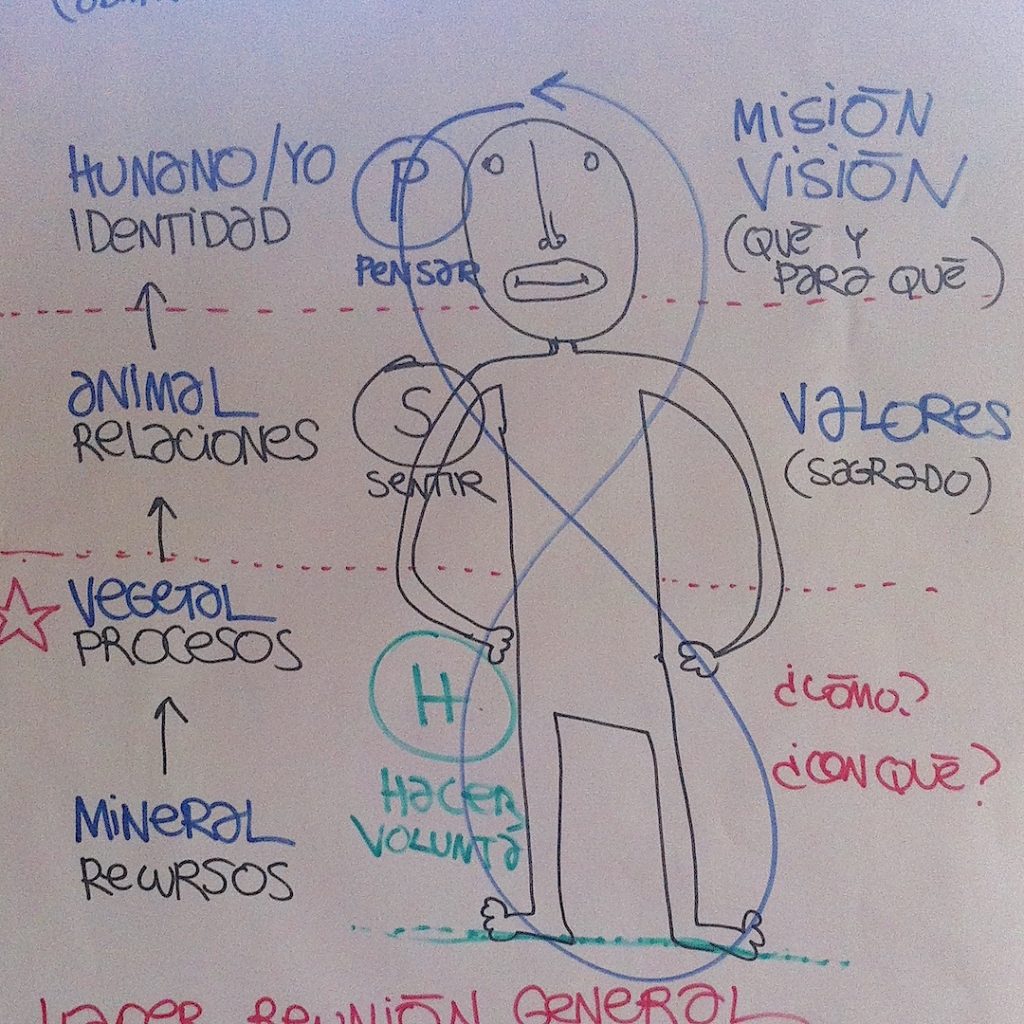 HUMANO/YO
IDENTIDAD
P
PENSAR
MISIÓN
VISIÓN
(QUÉ Y
PARA QUÉ)
ANIMAL
RELACIONES
S
SENTIR
VALORES
(SAGRADO)
VEGETAL
PROCESOS
H
HACER
VOLUNTA
¿CÓMO?
¿CON QUÉ?
MINERAL
RECURSOS
HACER REUNIÓN GENERAL